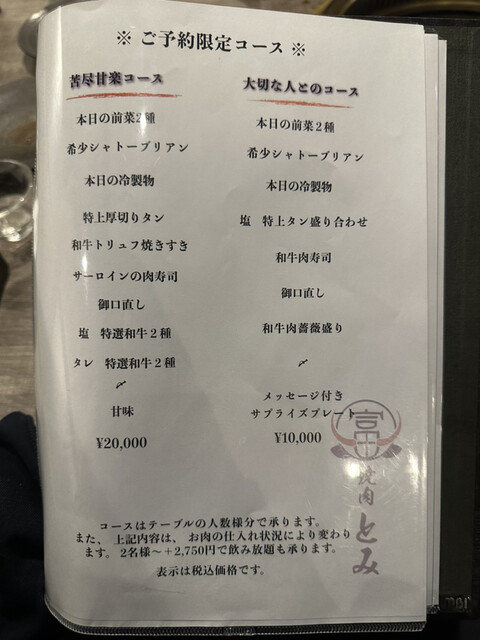 ※ ご予約限定コース ※
苦尽甘楽コース
本日の前菜2種
希少シャトーブリアン
本日の冷製物
特上厚切りタン
和牛トリュフ焼きすき
サーロインの肉寿司
御口直し
塩 特選和牛2種
タレ 特選和牛2種
〆
甘味
¥20,000
大切な人とのコース
本日の前菜2種
希少シャトーブリアン
本日の冷製物
塩 特上タン盛り合わせ
和牛肉寿司
御口直し
和牛肉薔薇盛り
〆
メッセージ付き
サプライズプレート
¥10,000
富
焼肉
とみ
コースはテーブルの人数様分で承ります。
また、上記内容は、お肉の仕入れ状況により変わり
ます。2名様〜+2,750円で飲み放題も承ります。
表示は税込価格です。